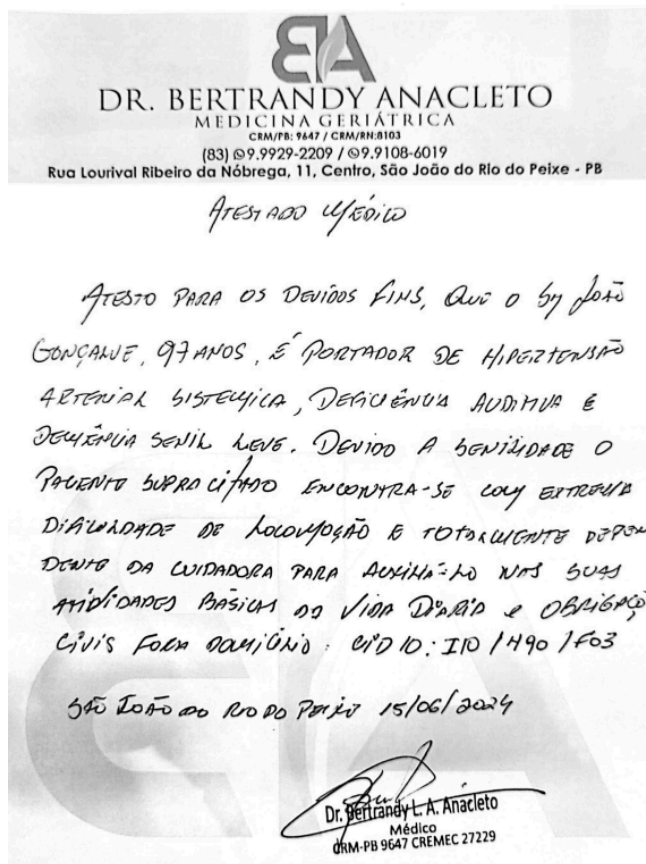 DR. BERTRANDY ANACLETO
MEDICINA GERIÁTRICA
CRM/PB: 9647 / CRM/RN:8103
(83) 9.9929-2209 / 9.9108-6019
Rua Lourival Ribeiro da Nóbrega, 11, Centro, São João do Rio do Peixe - PB
ATESTADO MÉDICO
ATESTO PARA OS DEVIDOS FINS, QUE O Sr João
GONÇALVE, 97 ANOS, É PORTADOR DE HIPERTENSÃO
ARTERIAL SISTEMICA, DEFICIÊNCIA AUDITIVA E
DEMÊNCIA SENIL LEVE. DEVIDO A SENILIDADE O
PACIENTE SUPRACITADO ENCONTRA-SE COM EXTREMA
DIFICULDADE DE LOCOMOÇÃO E TOTALMENTE DEPEN
DENTE DA CUIDADORA PARA AUXILIÁ-LO NAS SUAS
ATIVIDADES BÁSICAS DA VIDA DIÁRIA e OBRIGAÇÕ
CIVIS FORA DOMICÍLIO. CID 10: I10 / H90 / F03
SÃO JOÃO DO RIO DO PEIXE 15/06/2024
Dr. Bertrandy L. A. Anacleto
Médico
CRM-PB 9647 CREMEC 27229